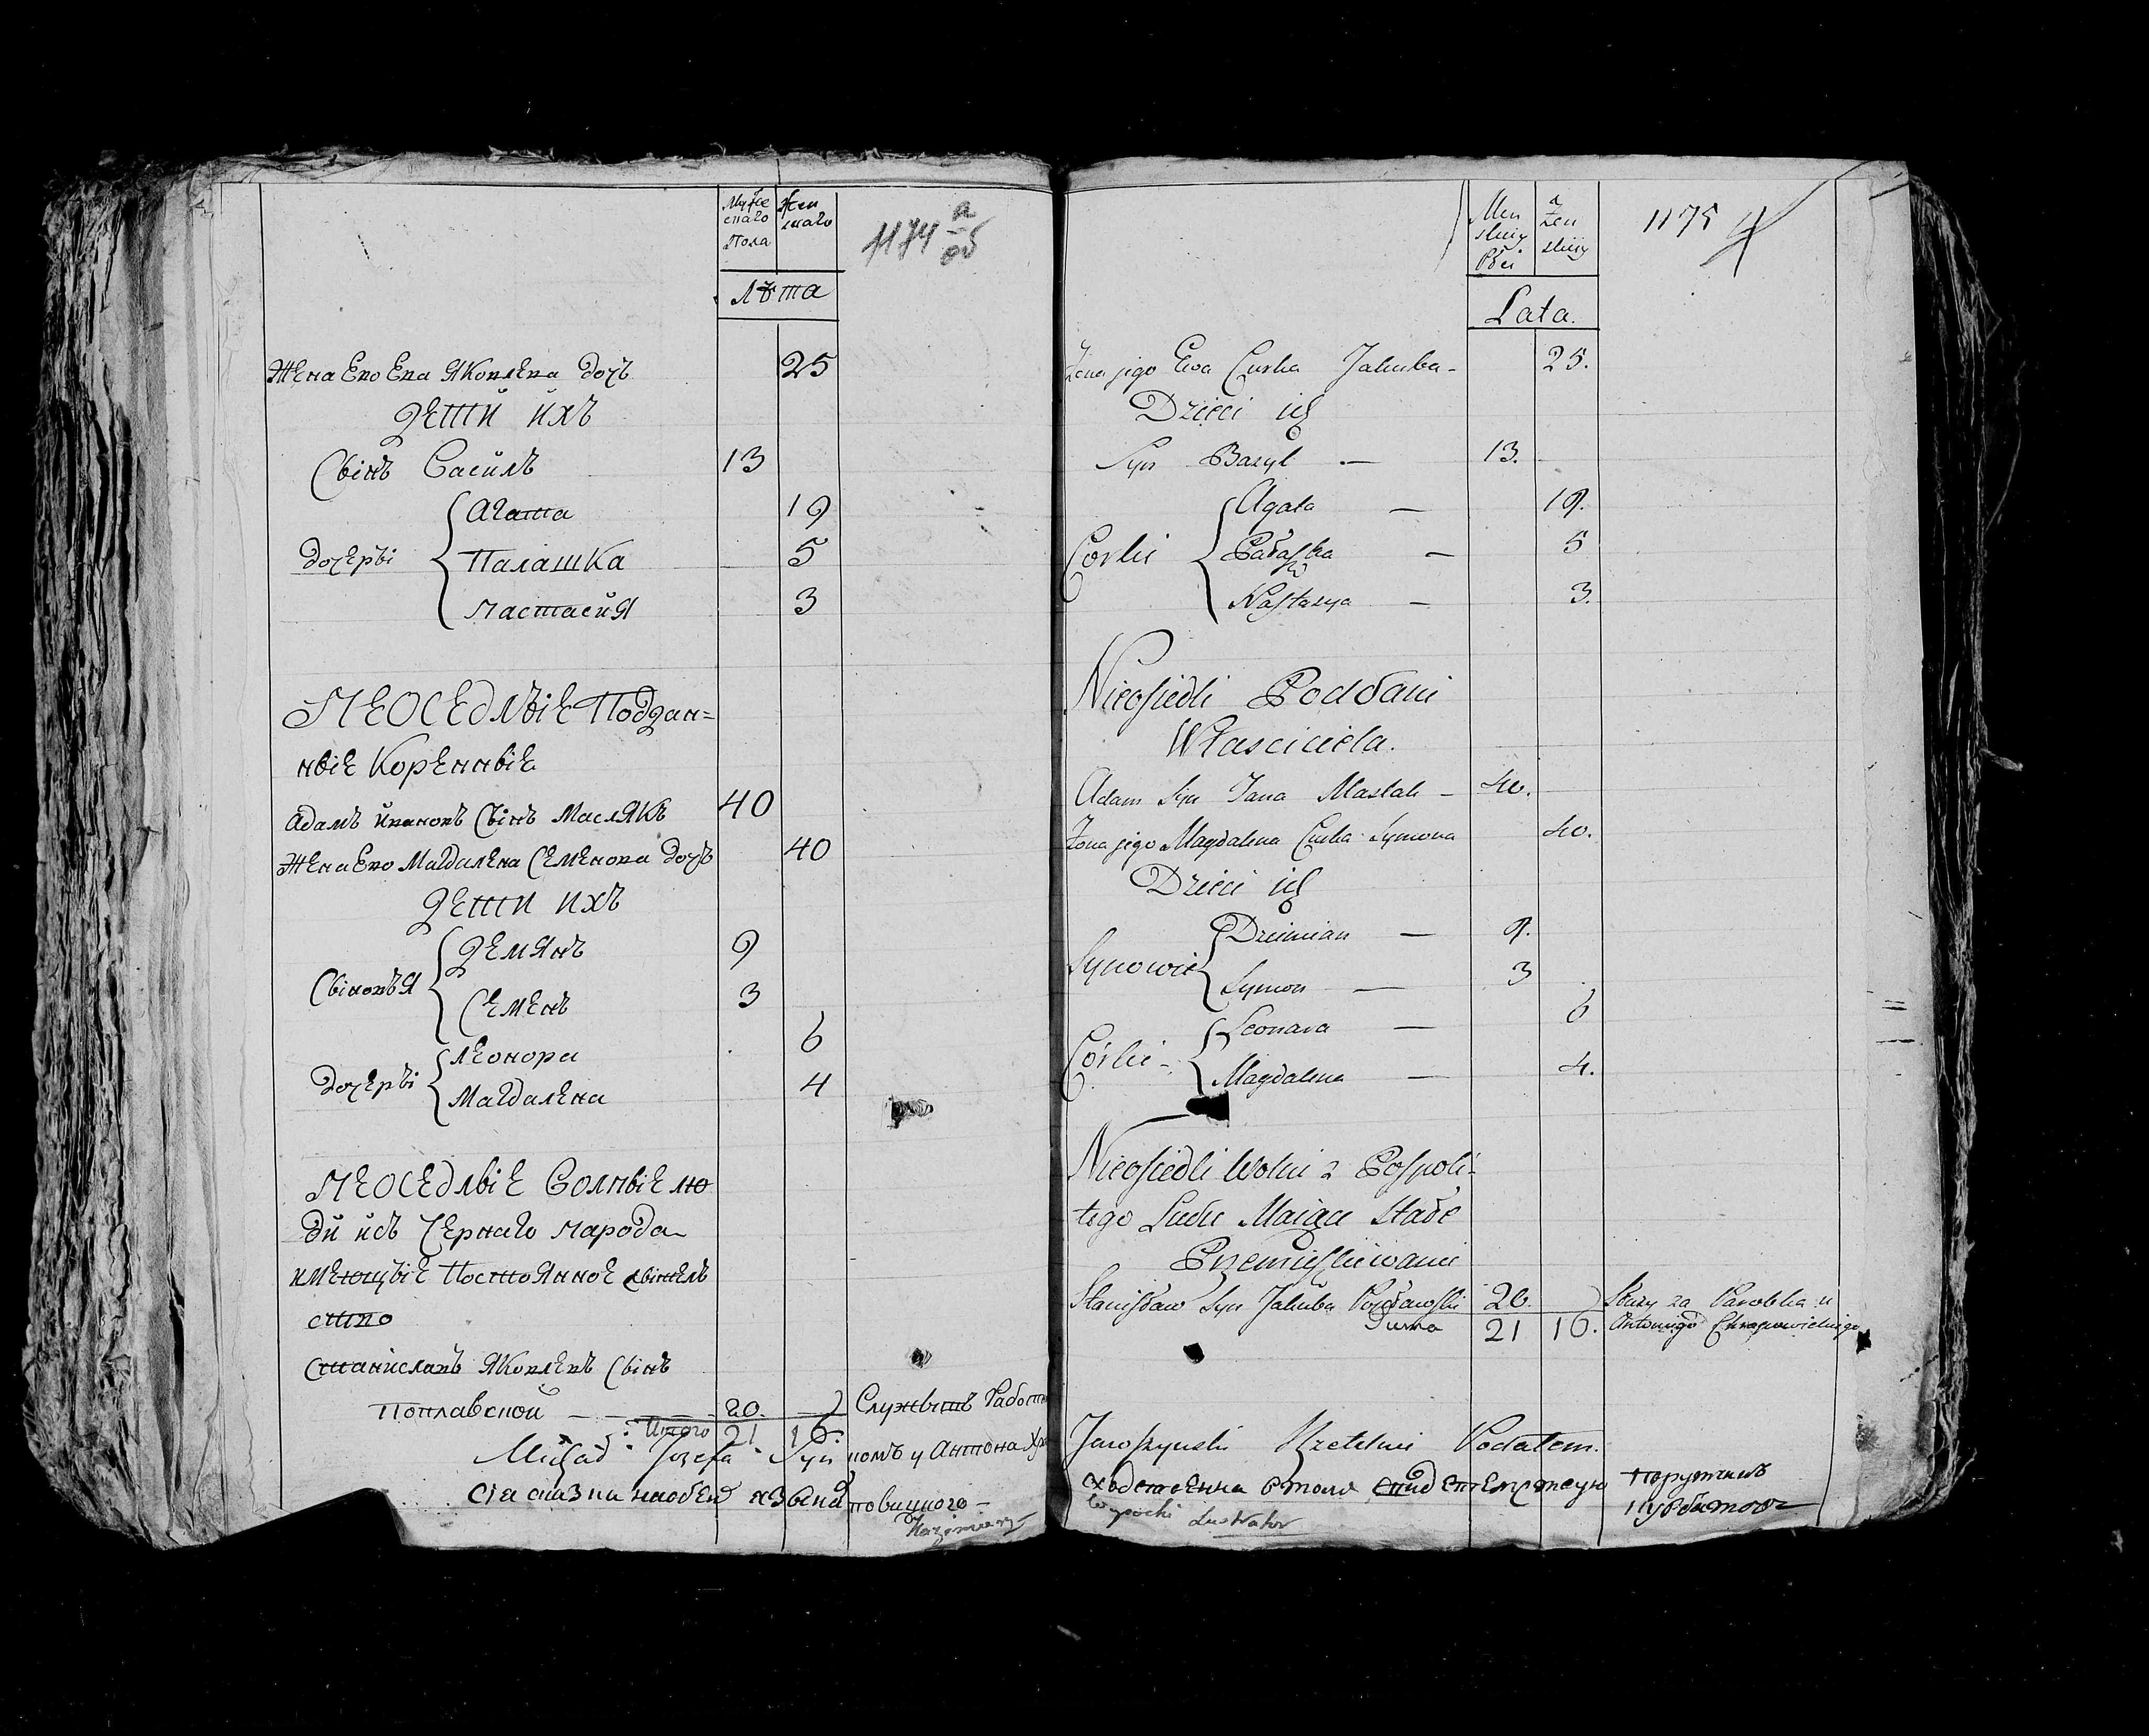 Муже
скаго
Пола
Жен
скаго
1174 а/об
Лѣта
Жена Его Ева Яковлева дочь 25
Дети ихъ
Сынъ Василь 13
дочеры
Агата 19
Палашка 5
Настасия 3
Неоседлые Поддан=
ные Коренные
Адамъ Ивановъ Сынъ Маслякъ 40
Жена Его Магдалена Семенова дочь 40
Дети ихъ
Сыновья
Демянъ 9
Семенъ 3
дочеры
Леонора 6
Магдалена 4
Неоседлые Волные лю
ди изъ Чернаго Народа
имеющые Постоянное жытель
ство
Станиславъ Яковлевъ Сынъ
Поплавской 20. Служытъ Работни
Итого 21 16.
комъ у Антона Хра
повицкого
Michał Jozefa Syn
Сия сказка
Kazimierz
Men
skiey
Płci
a
Żen
skiey
1175
Lata.
Żona jego Ewa Curka Jakuba - 25.
Dzieci ich
Syn Bazyl — 13.
Corki
Agata — 19.
Pałaszka — 5
Nastazya — 3.
Nieosiedli Poddani
Własciciela.
Adam Syn Jana Maslak - 40.
Żona jego Magdalena Curka Symona 40.
Dzieci ich
Synowie
Dziemian — 9.
Symon — 3
Córki -
Leonara — 6
Magdalena — 4.
Nieosiedli Wolni z Pospoli-
tego Ludu Maiące Stałe
Przemieszkiwanie
Stanisław Syn Jakuba Popławski 20. Służy za Parobka u
Suma 21 16. Antoniego Chrapowickiego
Jaroszynski Rzetelnie Podałem.
Lustrator